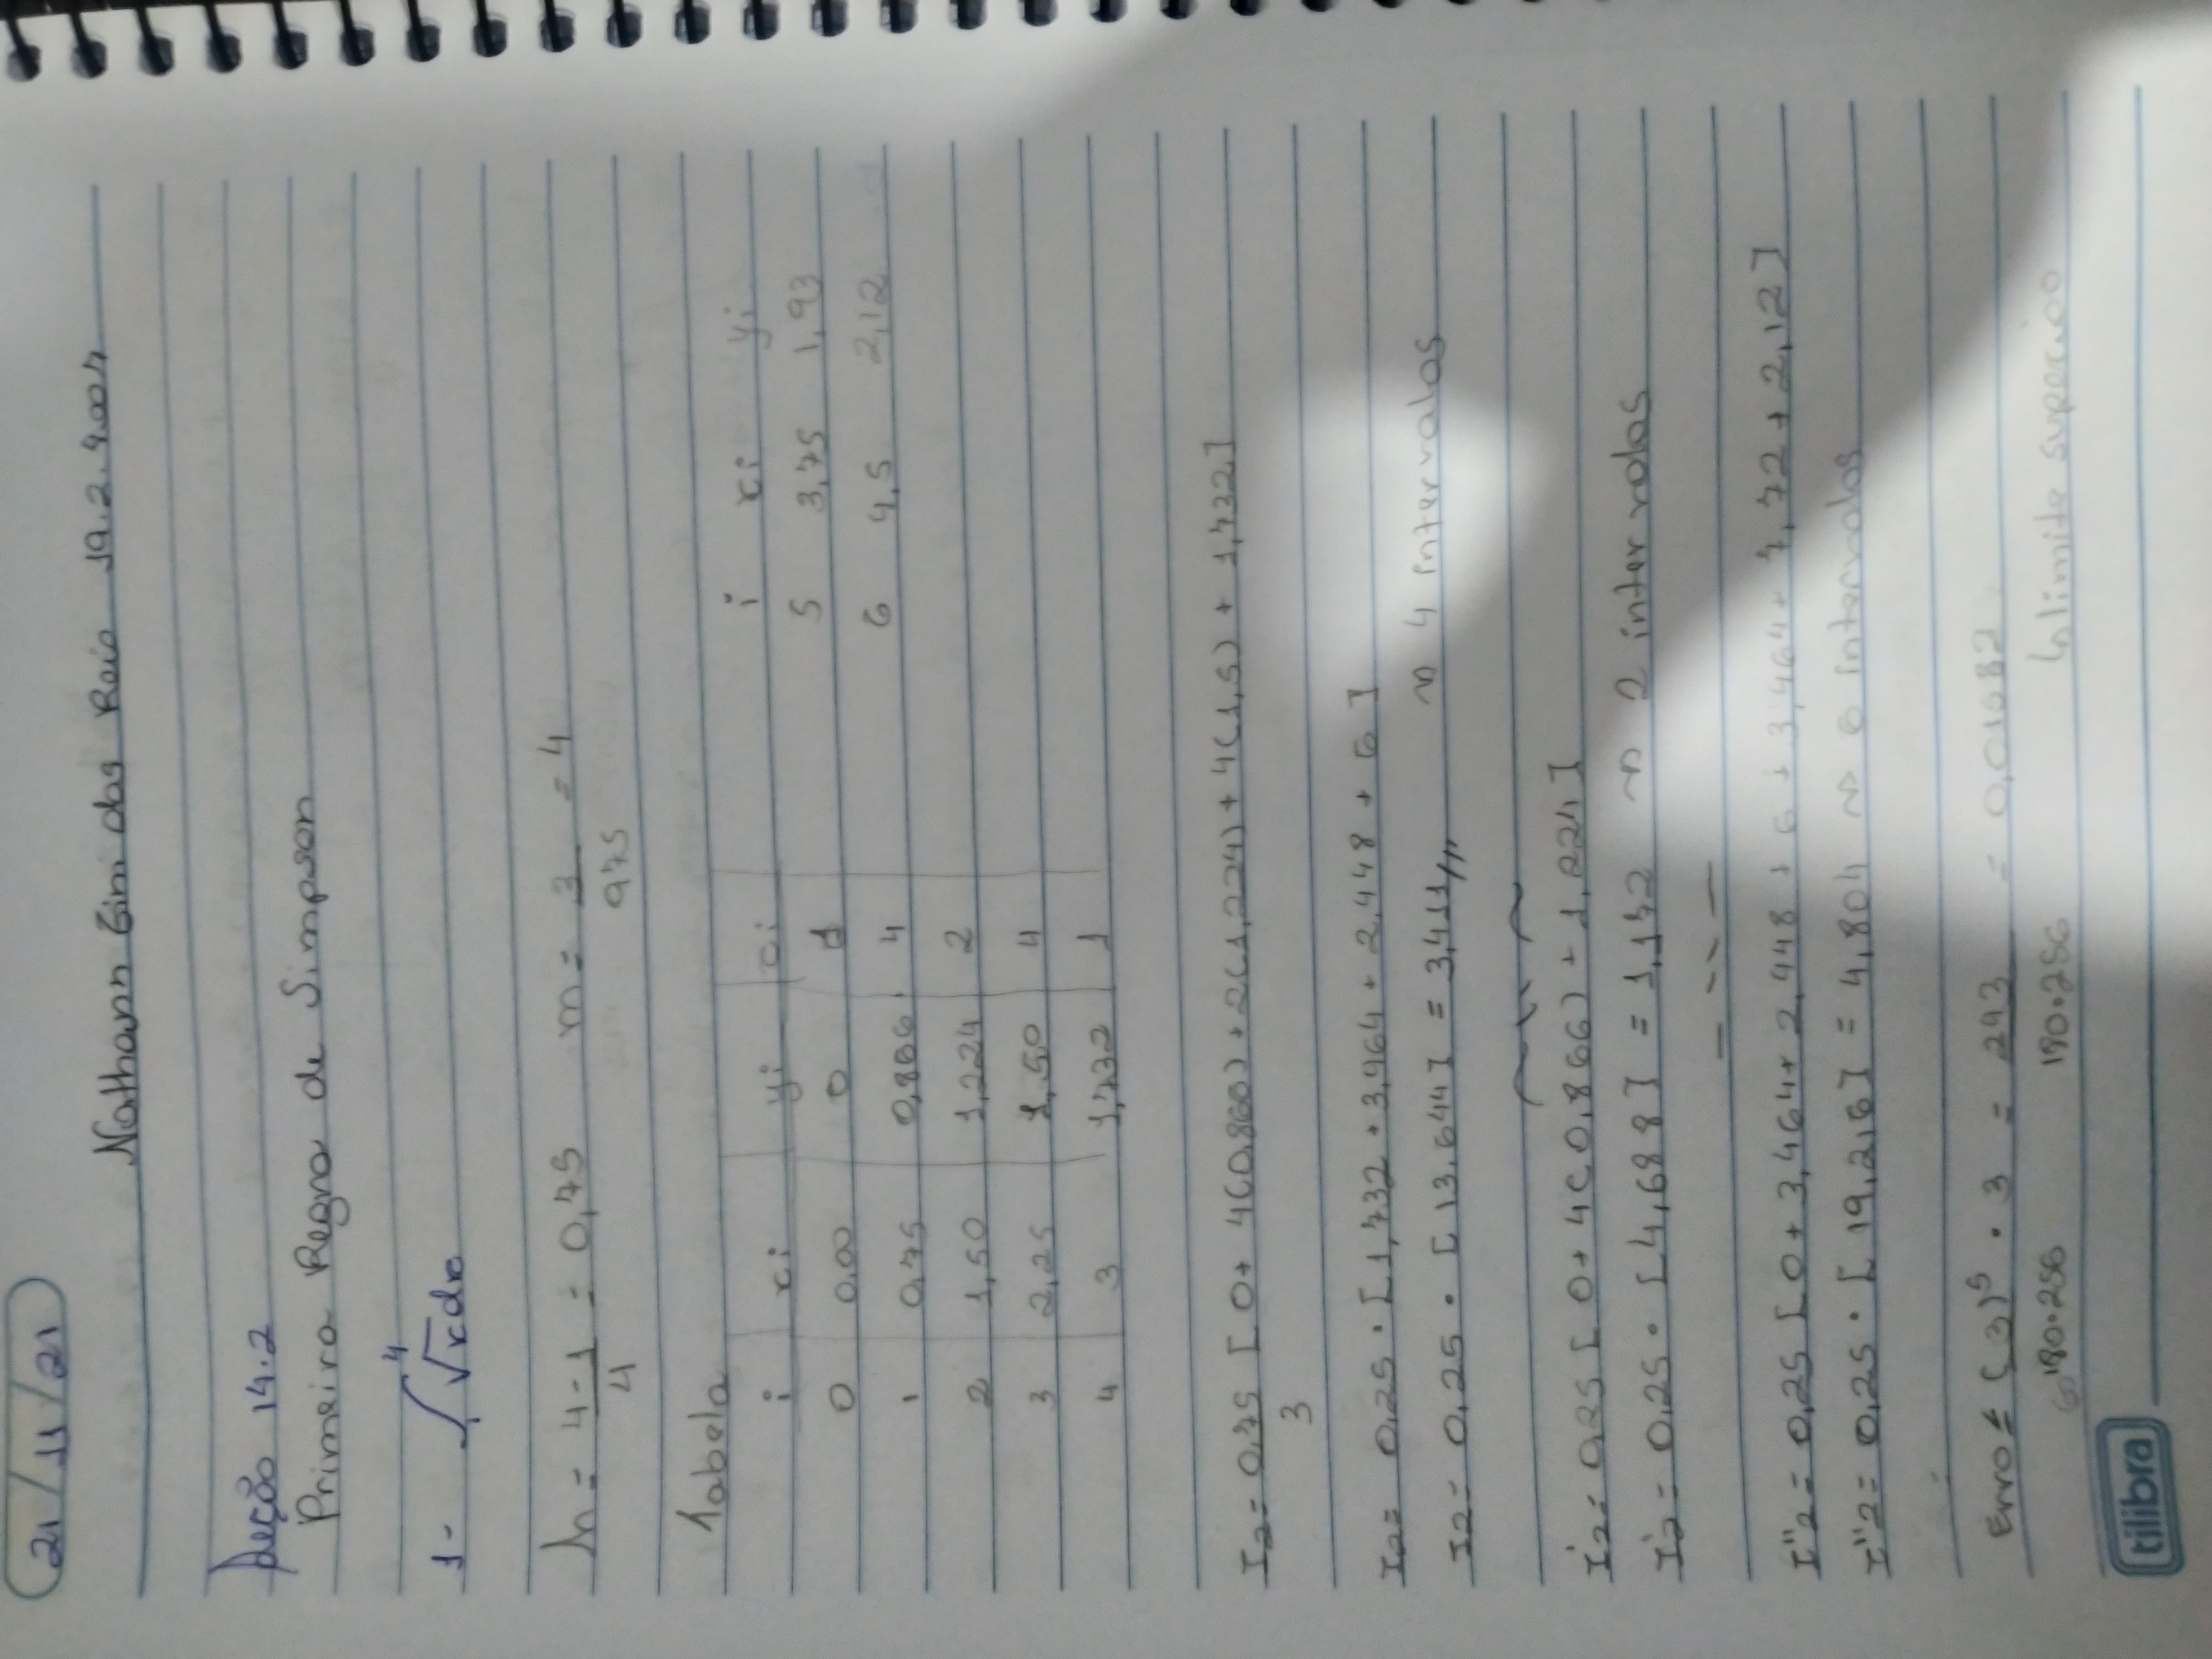 21/11/21
Nathann Zini dos Reis 19.2.4007
Seção 14.2
Primeira Regra de Simpson
1- ∫₁⁴ √x dx
h = (4-1)/4 = 0,75 m = 3/0,75 = 4
Tabela
i xi yi ci
0 0,00 0 1
1 0,75 0,866 4
2 1,50 1,224 2
3 2,25 1,50 4
4 3 1,732 1
i xi yi
5 3,75 1,93
6 4,5 2,12
I2 = 0,75/3 [ 0 + 4(0,866) + 2(1,224) + 4(1,5) + 1,732]
I2 = 0,25 · [1,732 + 3,464 + 2,448 + 6 ]
I2 = 0,25 · [ 13,644] = 3,411 4 intervalos
I'2 = 0,25 [ 0 + 4(0,866) + 1,224]
I'2 = 0,25 · [4,688] = 1,172 2 intervalos
I''2 = 0,25 [0 + 3,464 + 2,448 + 6 + 3,464 + 7,72 + 2,12]
I''2 = 0,25 · [ 19,216] = 4,804 6 intervalos
Erro ≤ (3)⁵ · 3 / 180·256 = 243 / 180·256 = 0,01582
limite superior
tilibra